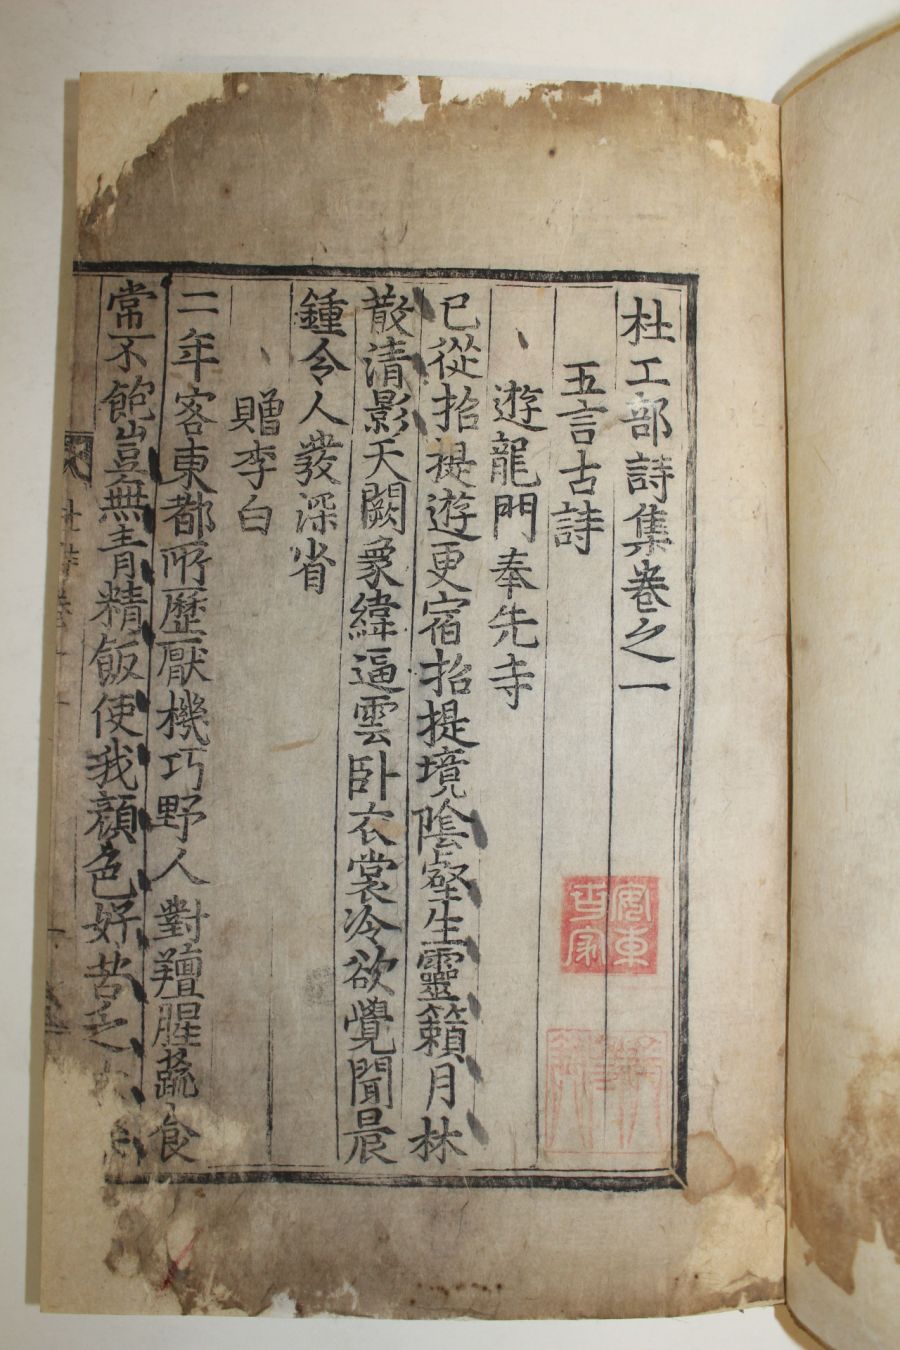 杜工部詩集卷之一
五言古詩
遊龍門奉先寺
已從招提遊更宿招提境陰壑生靈籟月林
散清影天闕象緯逼雲臥衣裳冷欲覺聞晨
鍾令人發深省
贈李白
二年客東都所歷厭機巧野人對羶腥蔬食
常不飽豈無青精飯使我顏色好苦乏